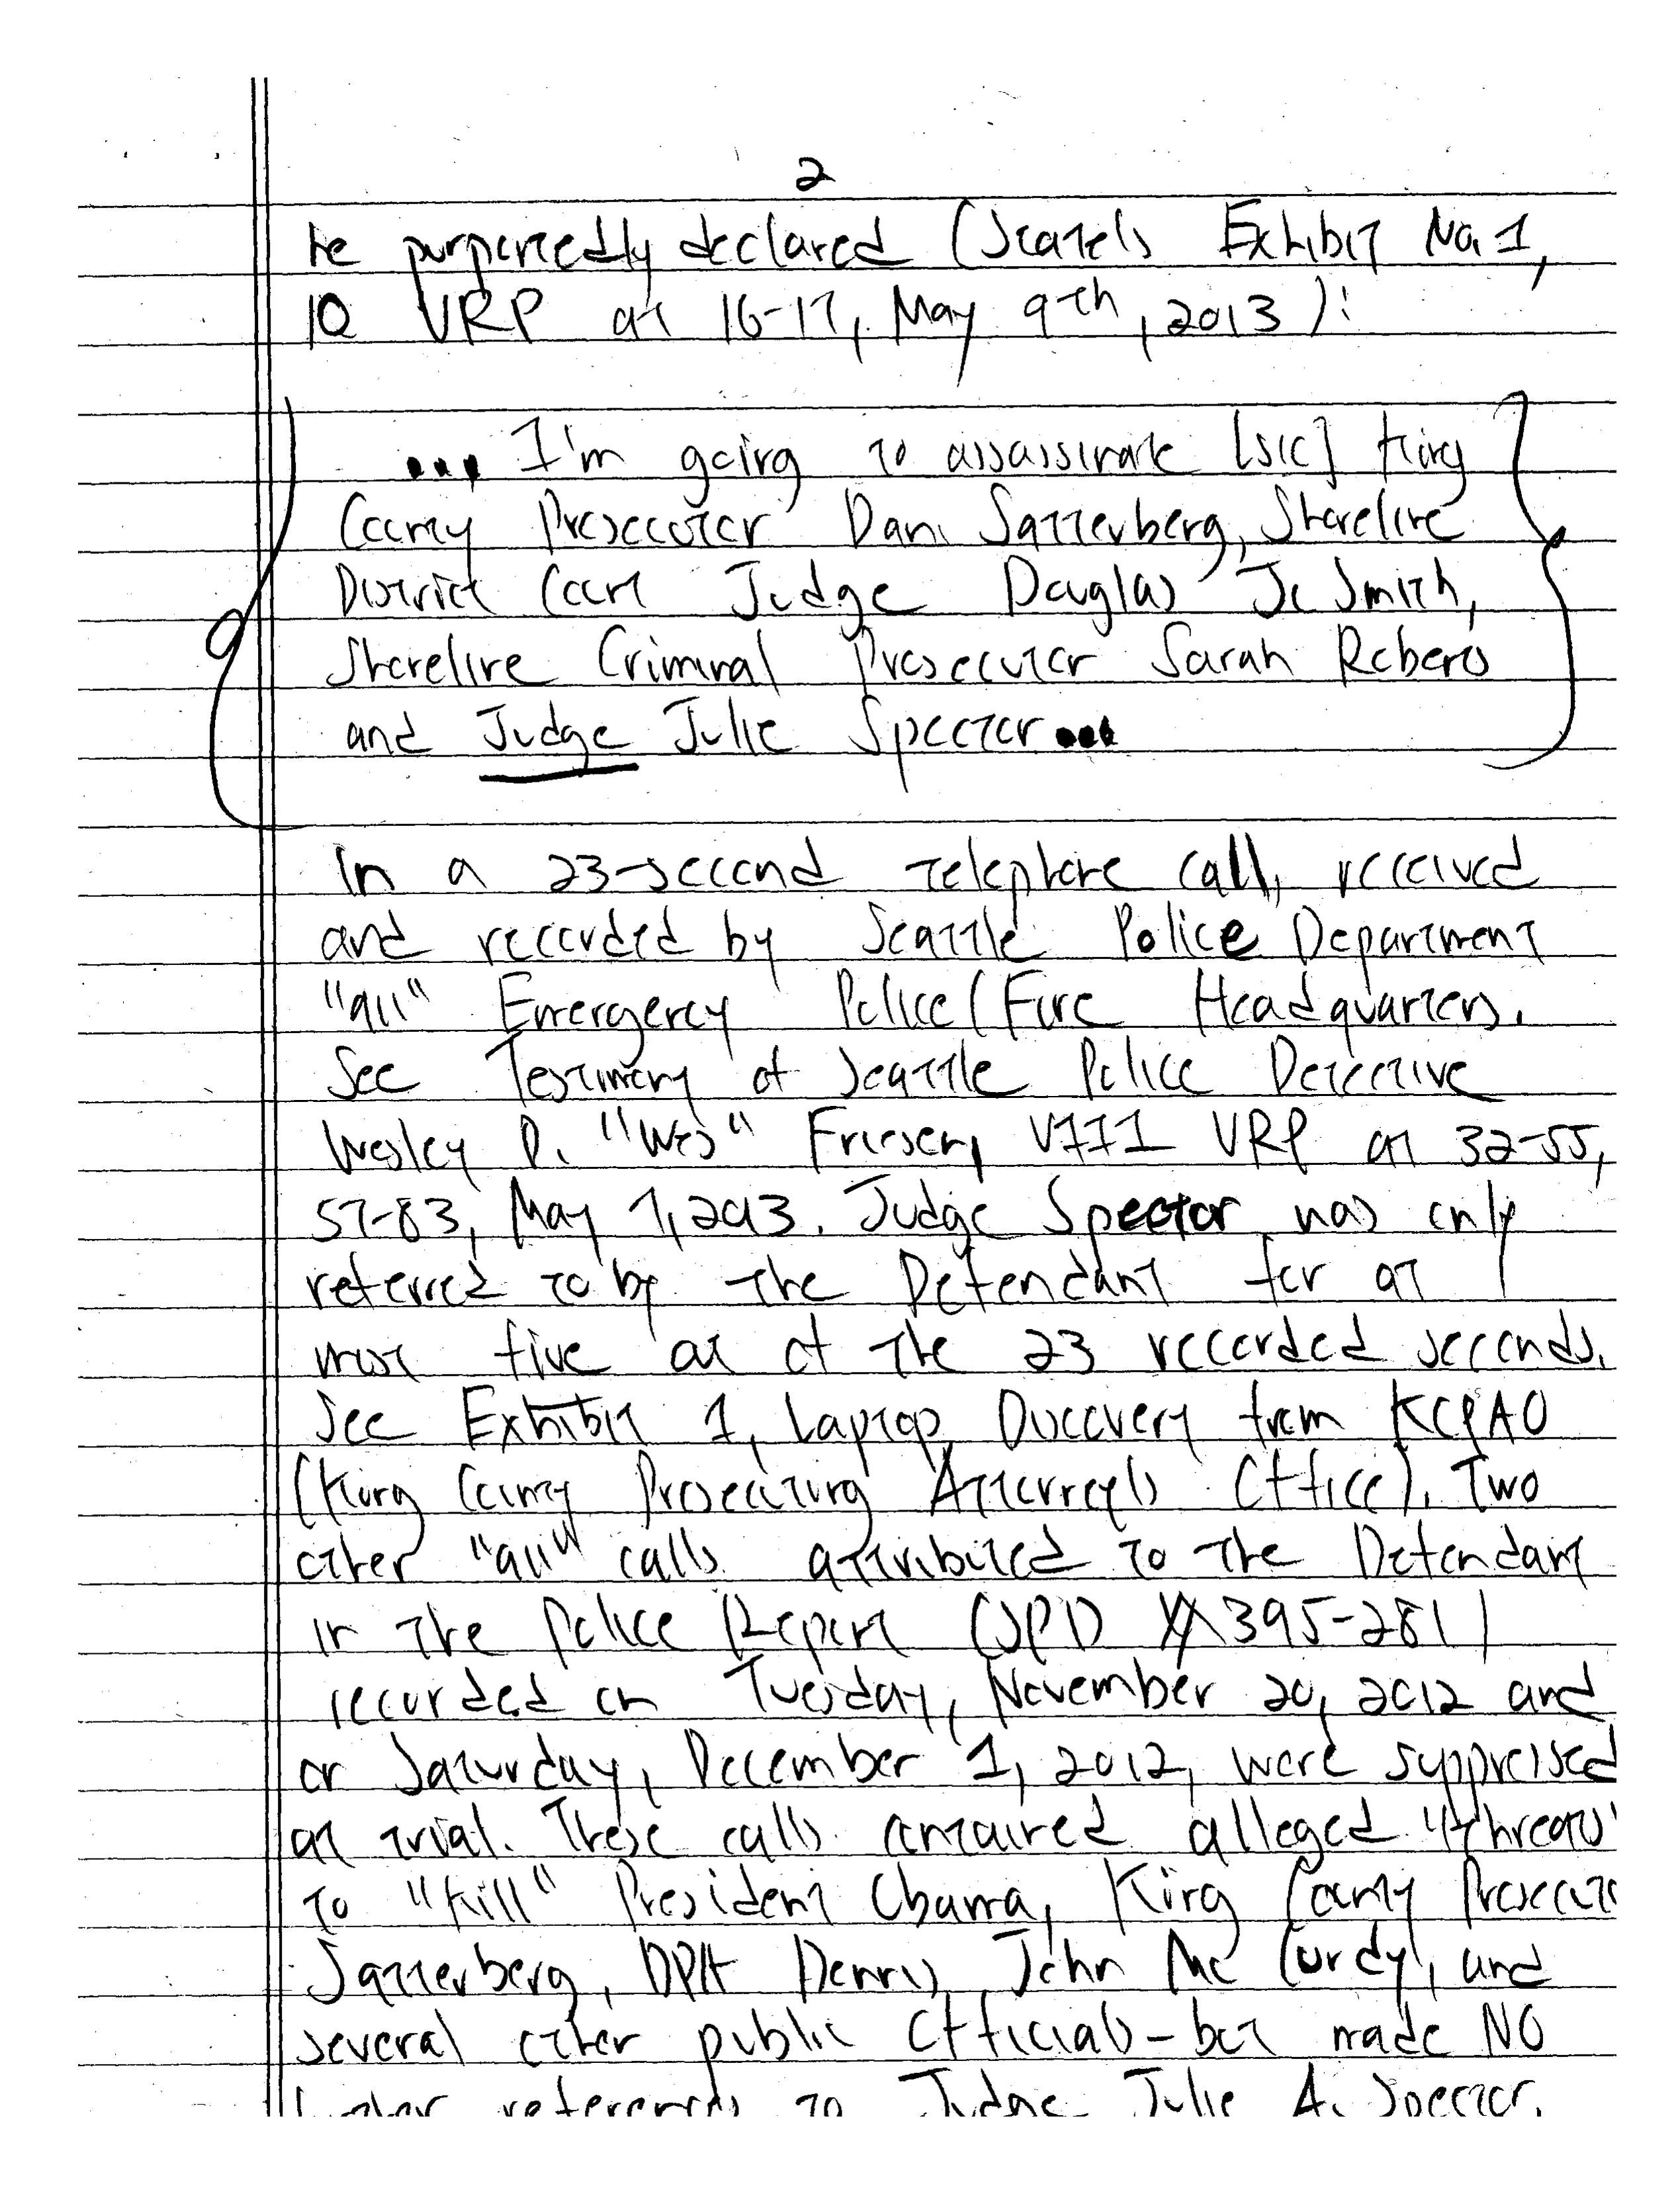 2
he purportedly declared (State's Exhibit No. 1,
10 VRP at 16-17, May 9th, 2013):
... I'm going to assassinate [sic] King
County Prosecutor Dan Satterberg, Shoreline
District Court Judge Douglas J. Smith,
Shoreline Criminal Prosecutor Sarah Roberts
and Judge Julie Spector ...
In a 23-second telephone call, received
and recorded by Seattle Police Department
"911" Emergency Police/Fire Headquarters.
See Testimony of Seattle Police Detective
Wesley D. "Wes" Friesen, VIII VRP at 32-55,
57-83, May 7, 2013. Judge Spector was only
referred to by the Defendant for at
most five out of the 23 recorded seconds.
See Exhibit 1, Laptop Discovery from KCPAO
(King County Prosecuting Attorney's Office). Two
other "911" calls attributed to the Defendant
in the Police Report (SPD 395-281)
recorded on Tuesday, November 20, 2012 and
on Saturday, December 1, 2012, were suppressed
at trial. These calls contained alleged "threats"
to "kill" President Obama, King County Prosecuto
Satterberg, DPA Dennis John McCurdy, and
several other public Officials - but made NO
references to Judge Julie A. Spector.